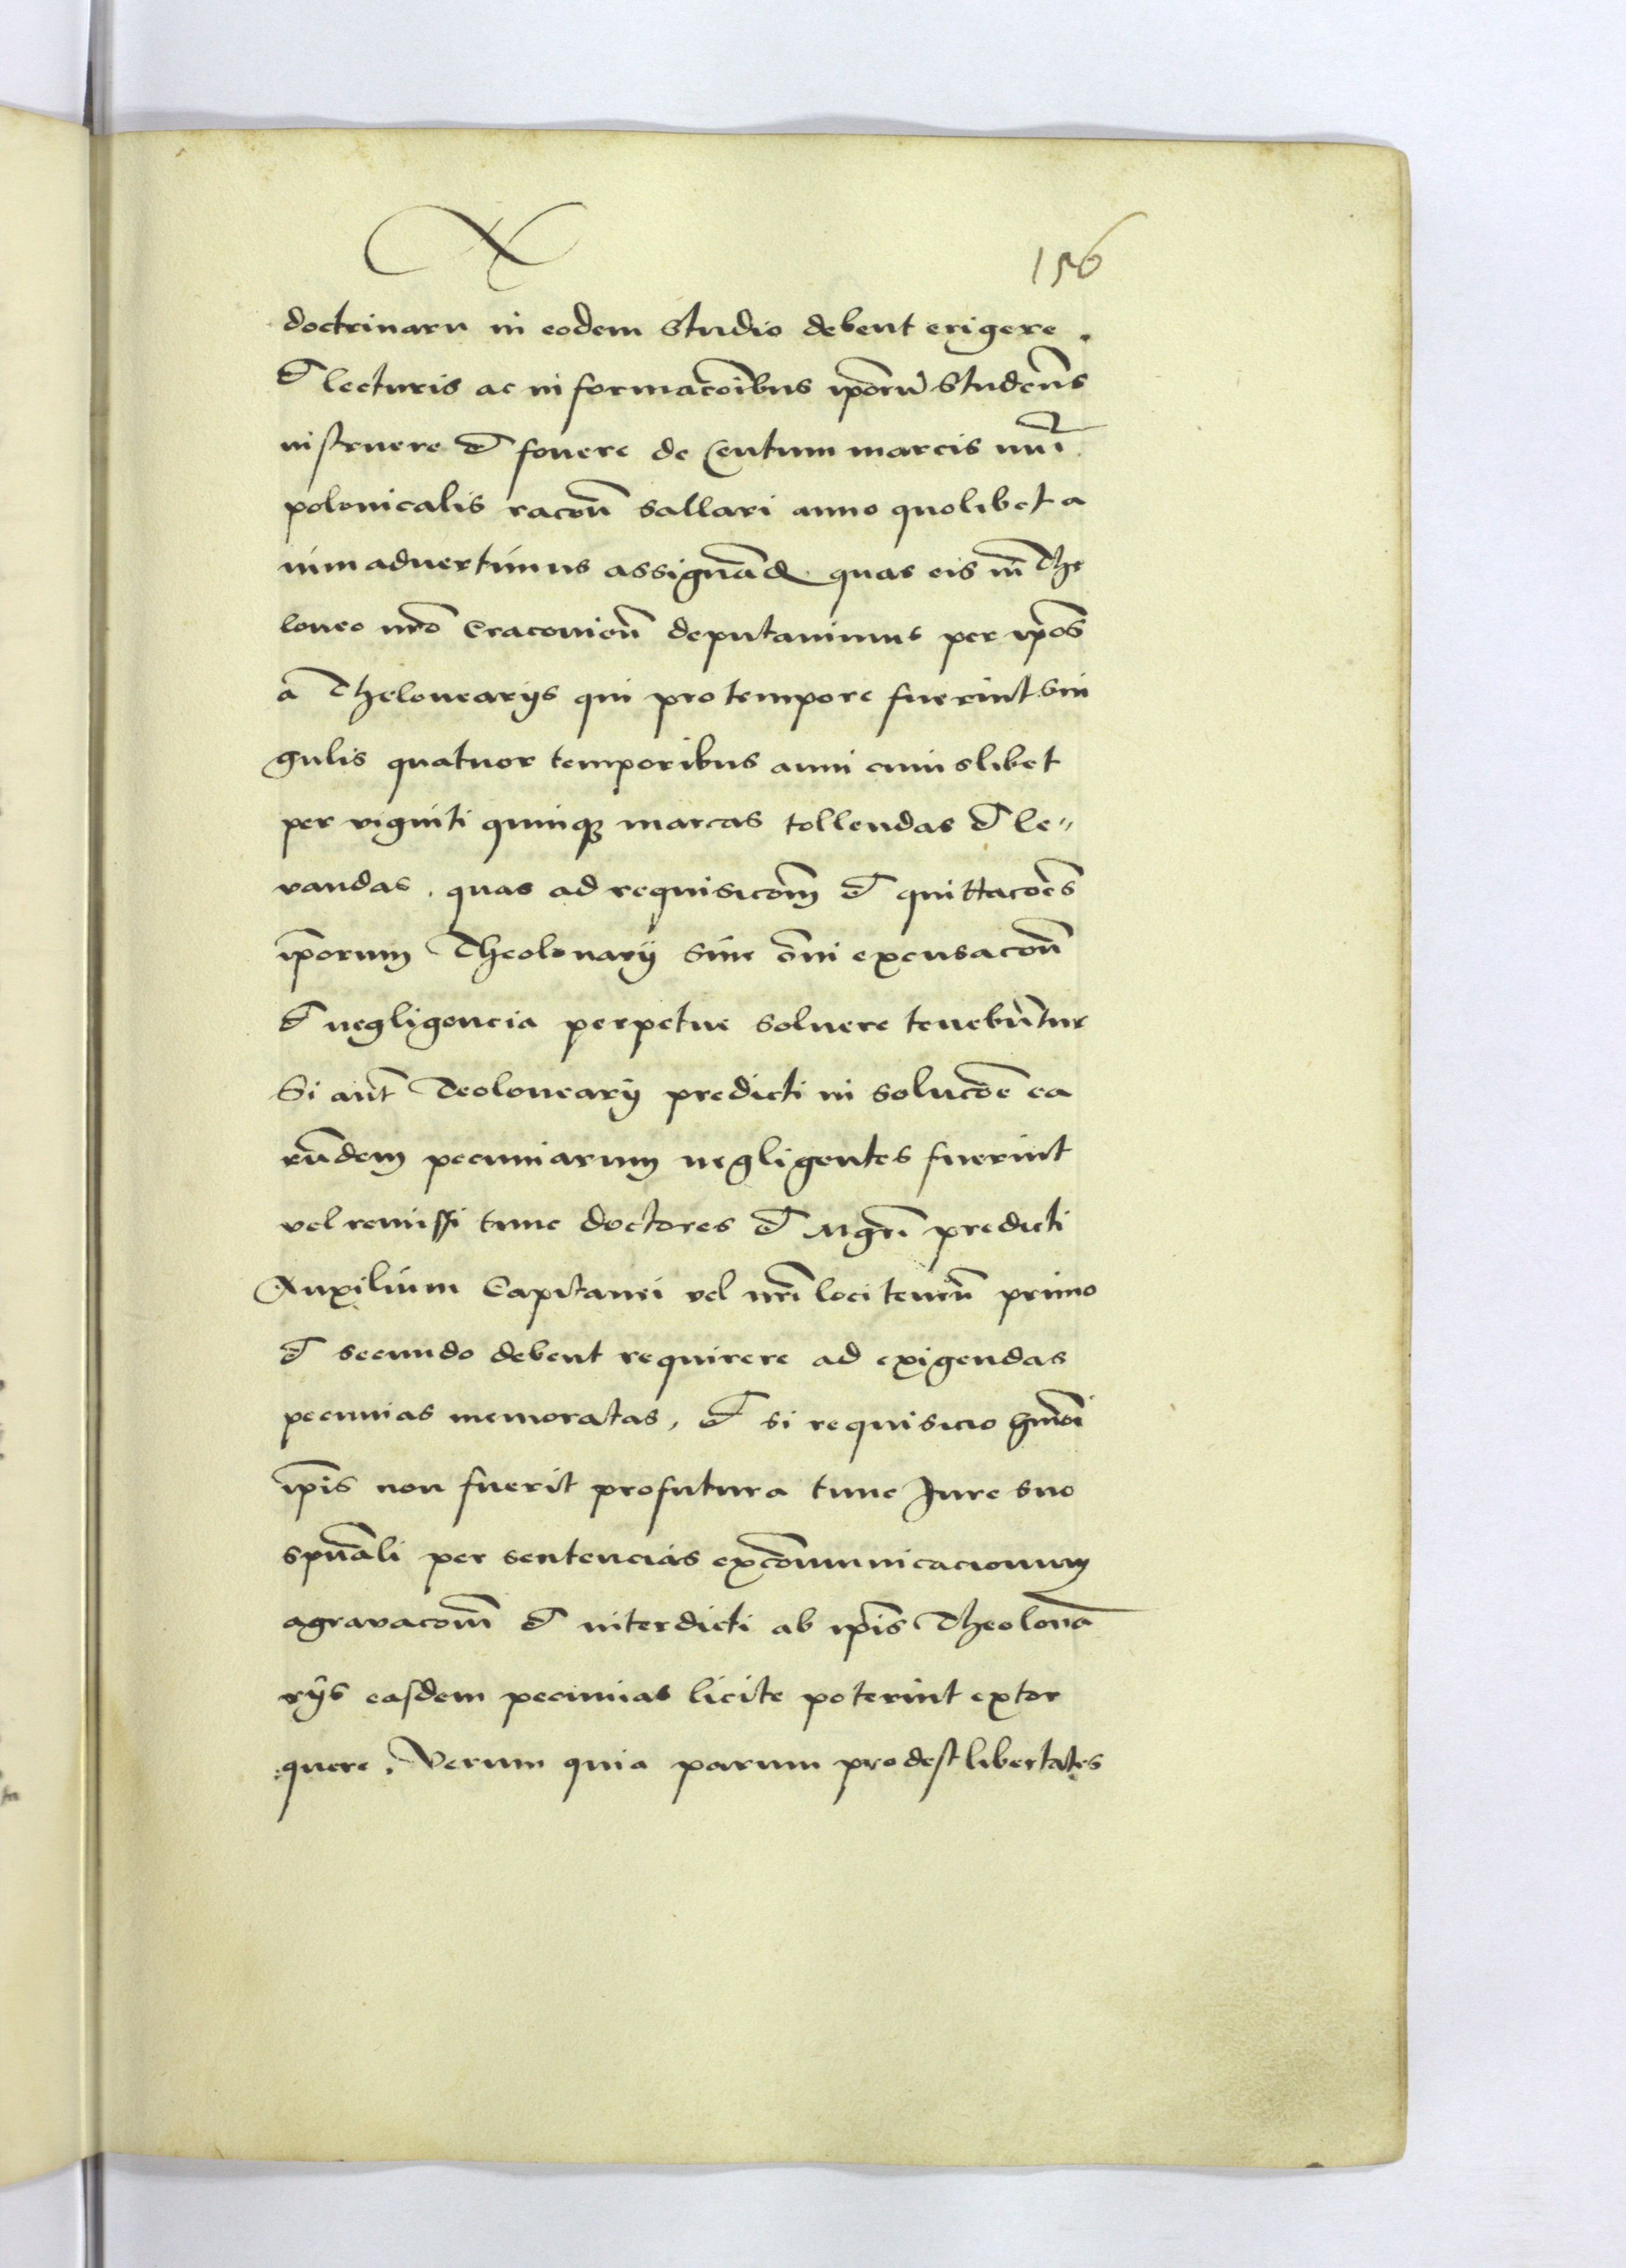 X 156
doctrinaru in eodem Studio debent erigere.
et lecturis ac informacoĩbus ipõrũ Studeñs
instruere et fovere de Centum marcis nũi
polonicalis racoñ sallari anno quolibet a
nimadvertimus assignãd. quas eis in The
loneo nrõ Cracovieñ deputavimus per ipõs
a Thelonearijs qui pro tempore fuerint sin
gulis quatuor temporibus anni cuiuslibet
per viginti quinqꝫ marcas tollendas et le〃
vandas. quas ad requisicõm et quittacoẽs
ip̃orum Theolonarij sine om̃i excusacoñ
et negligencia perpetue solvere tenebũtur
Si aut̃ Teolonearij predicti in solucoẽ ea
rũdem pecuniarum negligentes fuerint
vel remissi tunc doctores et Mgrĩ predicti
Auxilium Capitanei vel nrĩ loci teneñ primo
et secundo debent requirere ad exigendas
pecunias memoratas, et si requisicio hmõi
ip̃is non fuerit profutura tunc Jure suo
spũali per sentencias excõmunicacionum
agravacom̃ et interdicti ab ip̃is Theolonã
rijs easdem pecunias licite poterint extor
quere. Verum quia parum prodest libertates